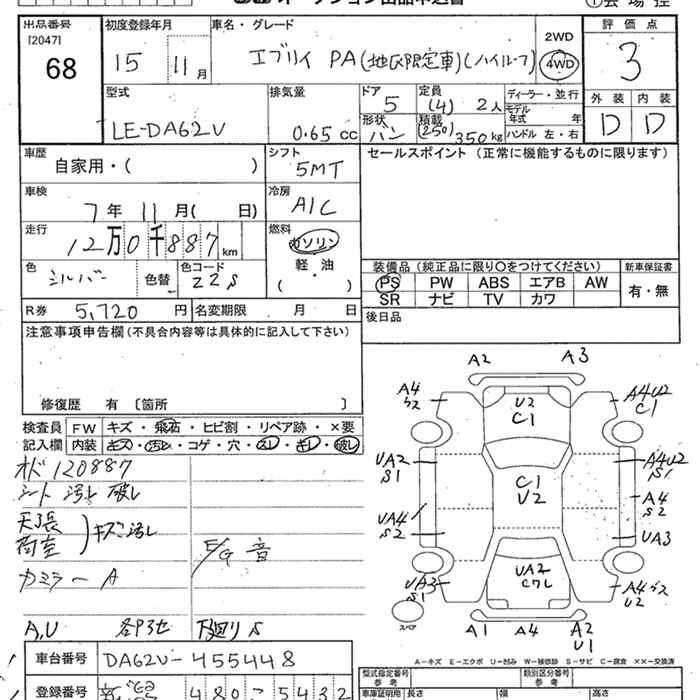 出品番号 初度登録年月 車名・グレード 2WD 評価点
[2047]
68 15 11月 エブリイ PA(地区限定車)(ハイルーフ) 4WD 3
型式 排気量 ドア 定員 ディーラー・並行 外装 内装
LE-DA62V 0.65 cc 5 (4) 2人 モデル年式 年
形状 積載 D D
バン (250) 350kg ハンドル 左・右
車歴 シフト セールスポイント (正常に機能するものに限ります)
自家用・( ) 5MT
車検 冷房
7年 11月( 日) A/C
走行 燃料
12万0千887km ガソリン
軽・油
( )
色 色替 色コード 装備品 (純正品に限り○をつけてください) 新車保証書
シルバー Z2S PS PW ABS エアB AW 有・無
SR ナビ TV カワ
R券 5,720円 名変期限 月 日 後日品
注意事項申告欄(不具合内容等は具体的に記入して下さい)
修復歴 有 〔箇所 〕
検査員 FW キズ・飛石・ヒビ割・リペア跡・×要
記入欄 内装 キズ・汚れ・コゲ・穴・スレ・キレ・破レ
オド120887
シート 汚レ 破レ
天張
荷室 キズ汚レ
E/G 音
カミラーA
A,U 下廻りS
A2 A3
A4 U2 C1 A4U2 C1
UA2 S1 C1 U2 A4U2 S1
A4 S2
UA4 S2 UA3
UA3 S1 UA2 Cワレ U2
スペア A1 A4 A2 U1
A-キズ E-エクボ U-凹み W-補修跡 S-サビ C-腐食 ××-交換済
車台番号 DA62V-455448
型式指定番号 類別区分番号
参考 参考
登録番号 480 5432
車庫証明用 長さ 幅